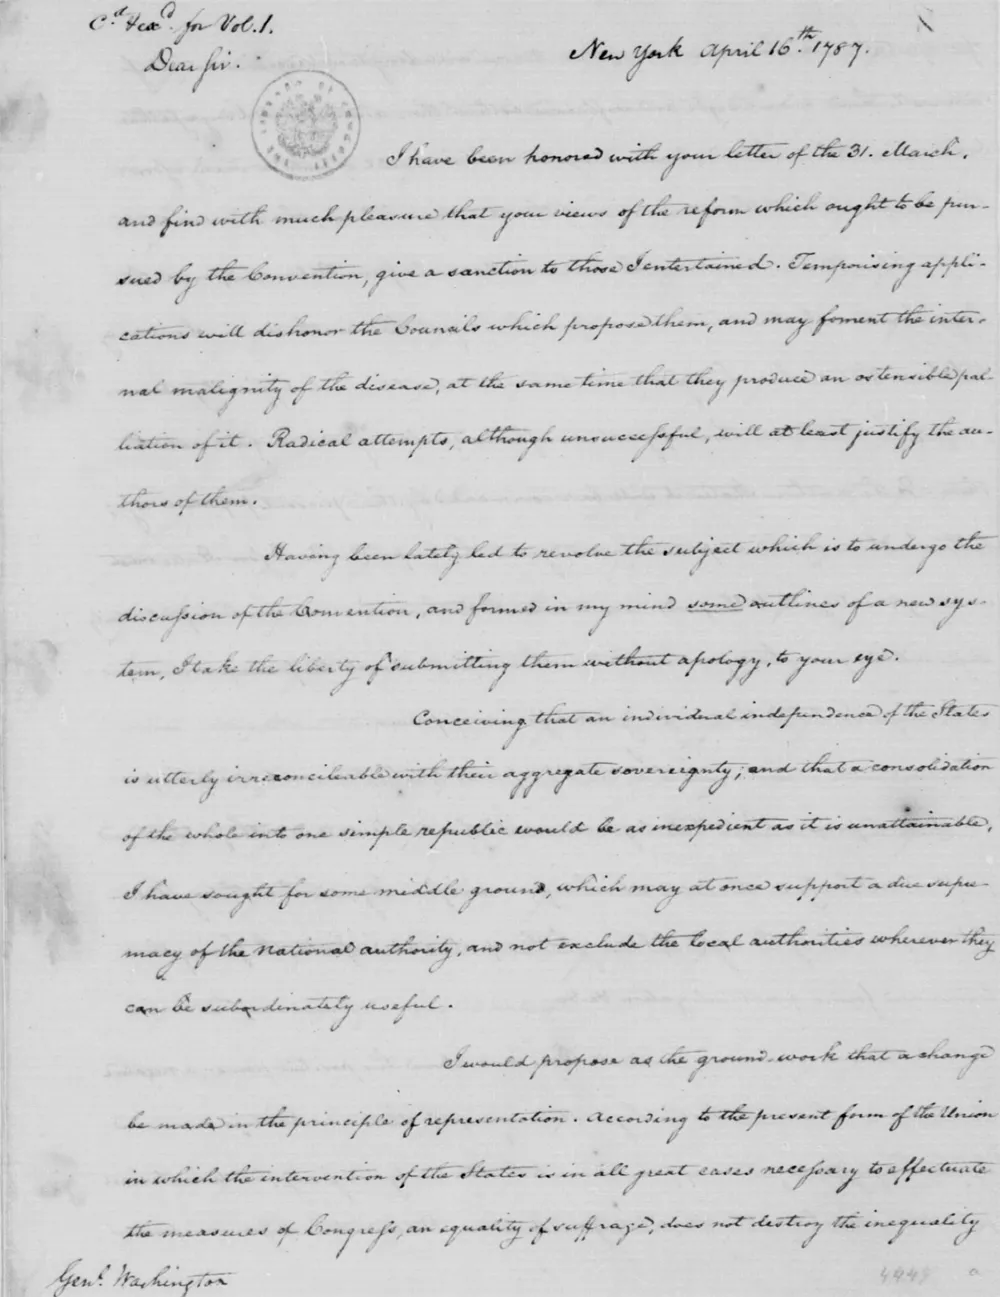 Cd & exd. for Vol. 1.
New York April 16th. 1787.
Dear Sir.
I have been honored with your letter of the 31. March,
and find with much pleasure that your views of the reform which ought to be pur-
sued by the Convention, give a sanction to those I entertained. Temporising appli-
cations will dishonor the Councils which propose them, and may foment the inter-
nal malignity of the disease, at the same time that they produce an ostensible pal-
liation of it. Radical attempts, although unsuccessful, will at least justify the au-
thors of them.
Having been lately led to revolve the subject which is to undergo the
discussion of the Convention, and formed in my mind some outlines of a new sys-
tem, I take the liberty of submitting them without apology, to your eye.
Conceiving that an individual independence of the States
is utterly irreconcileable with their aggregate sovereignty; and that a consolidation
of the whole into one simple republic would be as inexpedient as it is unattainable,
I have sought for some middle ground, which may at once support a due supre-
macy of the national authority, and not exclude the local authorities wherever they
can be subordinately useful.
I would propose as the ground-work that a change
be made in the principle of representation. According to the present form of the Union
in which the intervention of the States is in all great cases necessary to effectuate
the measures of Congress, an equality of suffrage, does not destroy the inequality
Genl. Washington